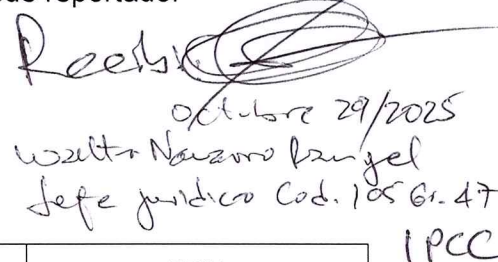 reportado.
Recibí
octubre 29/2025
Walter Navarro Rangel
Jefe jurídico Cod. 105 Gr. 47
IPCC